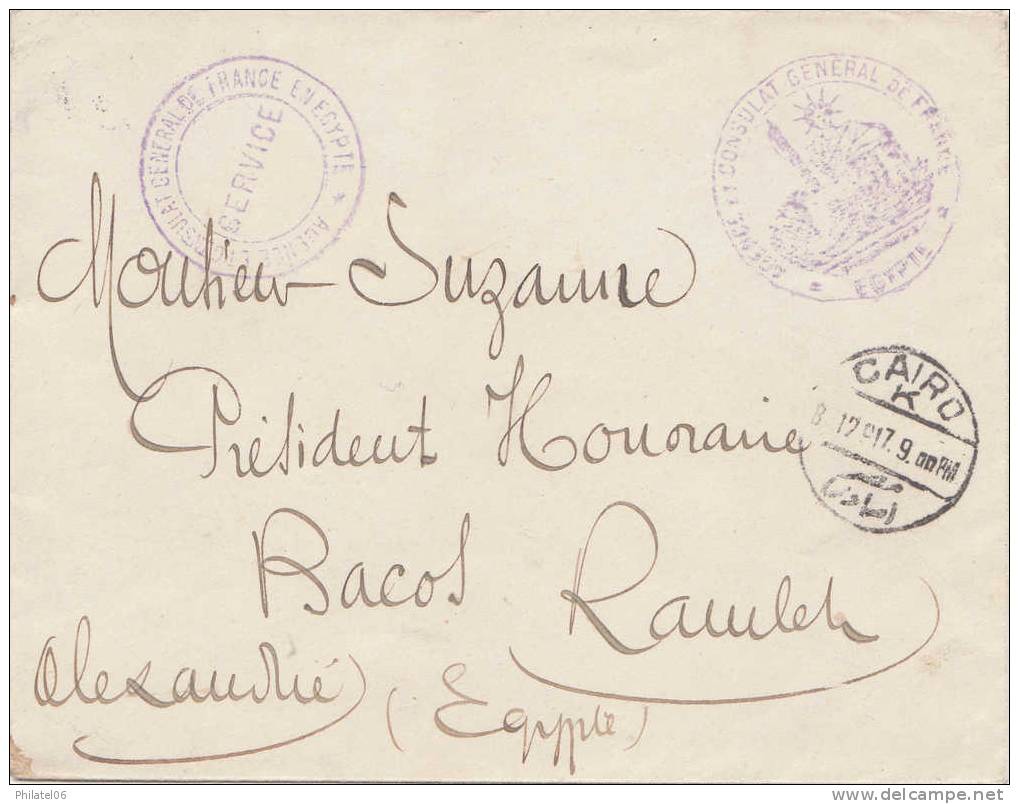 AGENCE ET CONSULAT GENERAL DE FRANCE EN EGYPTE
SERVICE
AGENCE ET CONSULAT GENERAL DE FRANCE
EGYPTE
Monsieur Suzanne
CAIRO
K
8.12.917.9.00PM
مصر
Président Honoraire
Bacos Ramleh
Alexandrie (Egypte)
Philatel06
www.delcampe.net